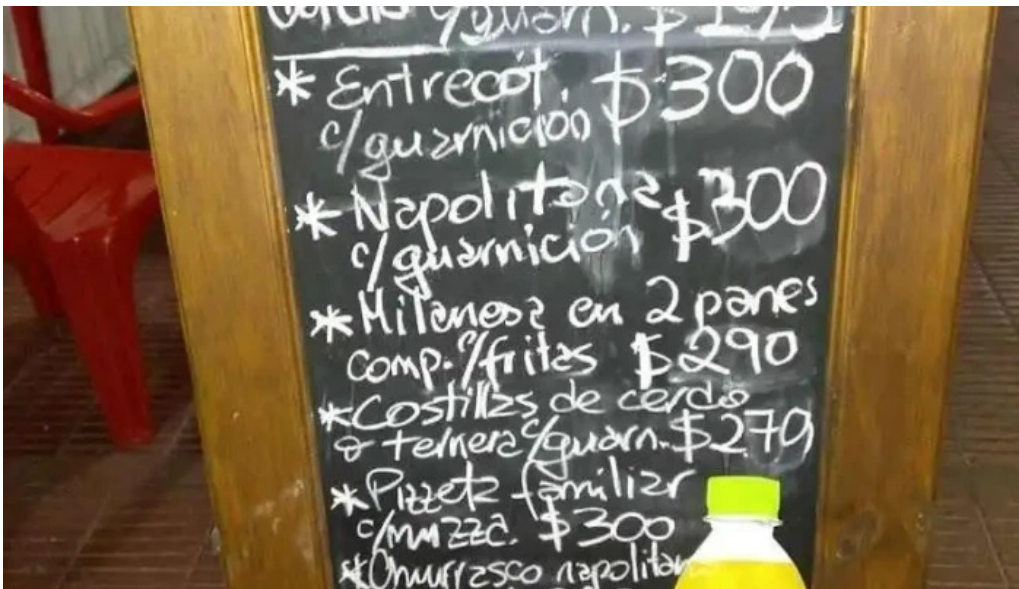 c/guarn. $195
* Entrecot. $300
c/guarnición
* Napolitana $300
c/guarnición
* Milanesa en 2 panes
comp. c/fritas $290
* Costillas de cerdo
o ternera c/guarn. $270
* Pizzeta familiar
c/muzza. $300
* Churrasco napolitan